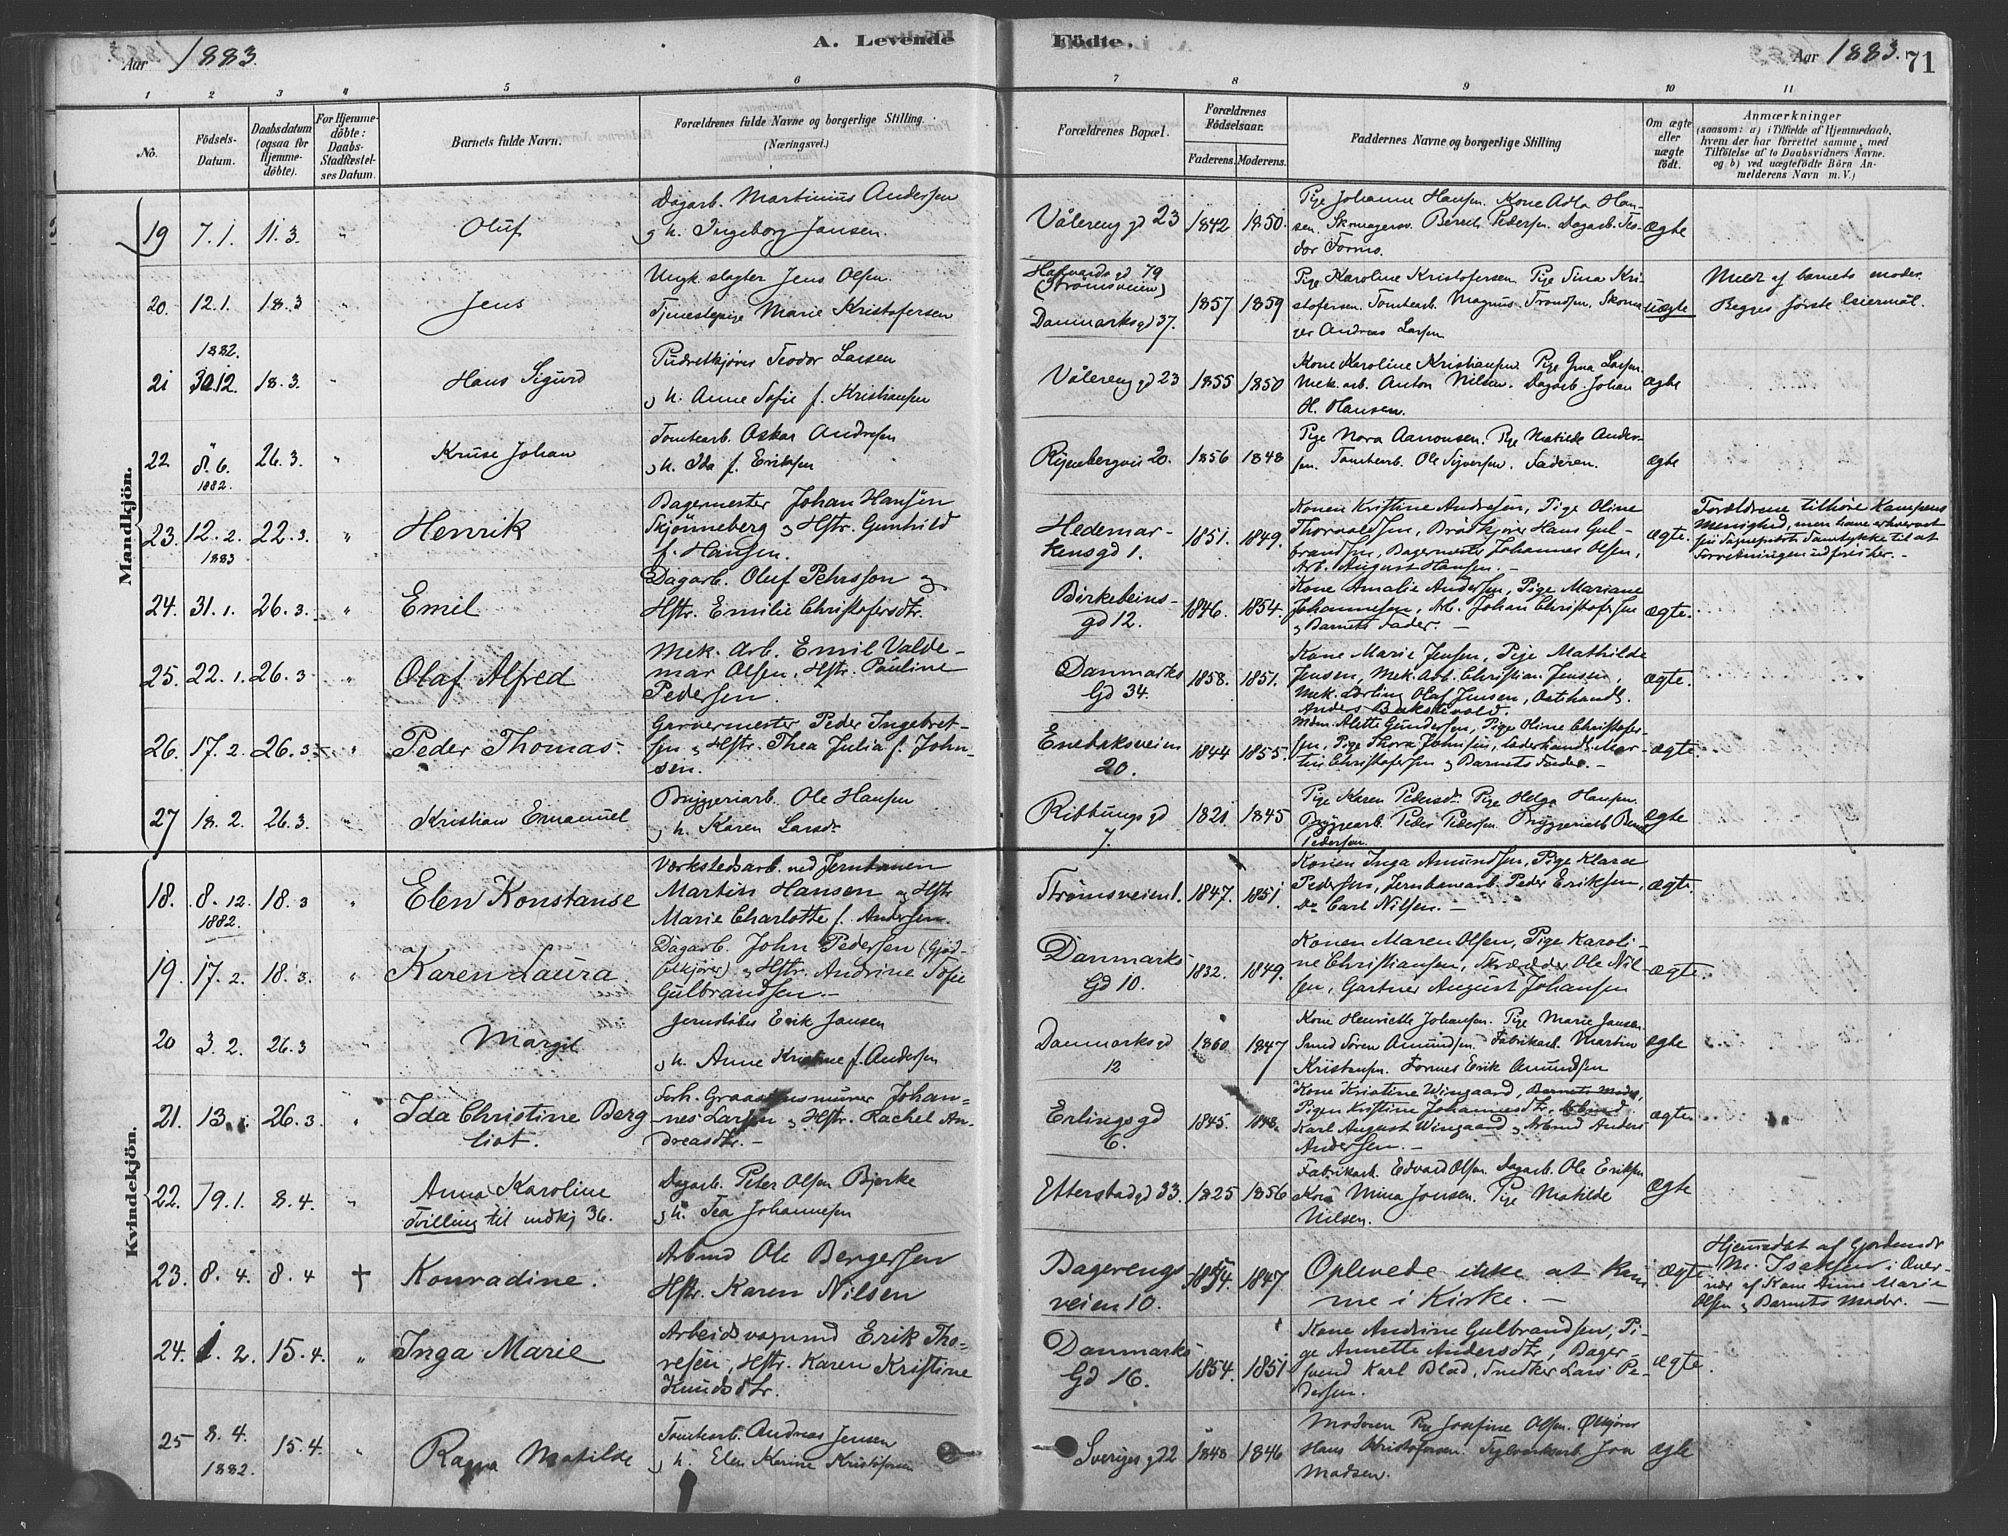 Aar 1883.
A. Levende
Födte.
Aar 1883. 71
1 2 3 4 5 6 7 8 9 10 11
No.
Födsels-Datum.
Daabsdatum (ogsaa for Hjemme-döbte).
For Hjemme-döbte: Daabs-Stadfæstel-ses Datum.
Barnets fulde Navn.
Forældrenes fulde Navne og borgerlige Stilling. (Næringsvei.)
Forældrenes Bopæl.
Forældrenes Födselsaar.
Faderens. Moderens.
Faddernes Navne og borgerlige Stilling
Om ægte eller uægte födt.
Anmærkninger
(saasom: a) i Tilfælde af Hjemmedaab,
hvem der har forrettet samme, med
Tilföielse af to Daabsvidners Navne.
og b) ved uægtefödte Börn An-
melderens Navn m. V.)
Mandkjön.
19 7.1. 11.3. " Oluf
Dagarb. Martinius Andersen
g h. Ingeborg Jansen.
Vålereng gd 23 1842 1850.
Pige Johanne Hansen. Kone Adla Han-
sen. Skomagersv. Berent Pedersen. Dagarb. Teo-
dor
ægte
20. 12.1. 18.3 " Jens
Ungk. slagter Jens Olsen.
Tjenestepige Marie Kristofersen
Halvards gd 79
(Strømsveien)
Danmarks gd 37.
1857 1859
Pige Karoline Kristofersen Pige Tina Kri-
stofersen. Tomtearb. Magnus Trondsen. Skoma-
ger Andreas Larsen
uægte
Meldt af barnets moder.
Begges første leiermål.
1882.
21 30.12. 18.3. " Hans Sigurd
Pudretkjører Teodor Larsen
g h. Anne Sofie f. Kristiansen
Vålereng gd 23 1855 1850
Kone Karoline Kristiansen. Pige Larsen
Mek. arb. Anton Nilsen. Dagarb. Johan
H. Hansen.
ægte
22 8.6. 26.3. " Kruse Johan
1882.
Tomtearb. Oskar Andresen
g h. Ida f. Eriksen
Ryenbergvei 20. 1856 1848
Pige Nora Aanonsen. Pige Matilde Ander-
sen. Tomtearb. Ole Syversen, Faderen.
ægte
23. 12.2. 22.3. " Henrik
1883
Bagermester Johan Hansen
Skjønneberg g Hstr. Gunhild
f. Hansen.
Hedemar-
kensgd 1. 1851. 1849.
Konen Kristine Andresen, Pige Oline
Thorvaldsen, Brødkjører Hans Gul-
brandsen, Bagermester Johannes Olsen,
Arb. August Hansen. -
ægte.
Forældrene tilhøre Kampens
Menighed, men have erhvervet
sin Sognepræsts Samtykke til at
Forretningen udføres her. -
24. 31.1. 26.3. " Emil
Dagarb. Oluf Pehrsson g
Hstr. Emilie Christofersdtr.
Birkebeins-
gd 12. 1846. 1854.
Kone Amalie Andersen, Pige Mariane
Johannesen, Arb. Johan Christofersen
g Barnets Fader. -
ægte.
25. 22.1. 26.3 " Olaf Alfred
Mek. Arb. Emil Valde-
mar Olsen, Hstr. Pauline
Pedersen.
Danmarks
Gd 34. 1858. 1851.
Kone Marie Jensen, Pige Mathilde
Jensen, Mek. Arb. Christian Jensen,
Mek. Lærling Olaf Jensen,
Anders
ægte.
26. 17.2. 26.3 " Peder Thomas
Garvermester Peder Ingebret-
sen g Hstr. Thea Julia f. John-
sen.
Enebaksveien
20. 1844 1855.
Mdm. Alette Gundersen, Pige Oline Christofer-
sen, Pige Thora Johnsen, Læderhandl. Mar-
tin Christofersen g Barnets Fader. -
ægte.
27 18.2. 26.3. " Kristian Emanuel
Bryggeriarb. Ole Hansen
g h. Karen Larsdr.
Ribbungs gd
7. 1821 1845
Pige Karen Pedersdr. Pige Helga Hansen.
Bryggearb. Peder Pedersen. Bryggeriarb.
Pedersen.
ægte
Kvindekjön.
18. 8.12. 18.3 " Elen Konstanse
1882.
Værkstedsarb. ved Jernbanen
Martin Hansen g Hstr.
Marie Charlotte f. Andersen.
Strømsveien 1. 1847. 1851.
Konen Inga Amundsen, Pige Klara
Pedersen, Jernbanearb. Peder Eriksen,
Do Carl Nilsen. -
ægte.
19. 17.2. 18.3. " Karen Laura
Dagarb. John Pedersen (Gjød-
selkjører) g Hstr. Andrine Sofie
Gulbrandsen. -
Danmarks
Gd 10. 1832. 1849.
Konen Maren Olsen, Pige Karoli-
ne Christiansen, Skrædder Ole Nil-
sen, Gartner August Johansen
ægte.
20 3.2. 26.3 " Margit
Jernstøber Erik Jansen
g h. Anne Kristine f. Andersen
Danmarks gd
12 1860 1847
Kone Henriette Johansen. Pige Marie Jansen.
Smed Søren Amundsen. Fabrikarb. Martin
Kristansen. Formes Erik Amundsen
ægte
21. 13. 26.3. " Ida Christine Berg
liot.
Forh. Graastensmurer Johan-
nes Larsen g Hstr. Rachel An-
dreasdtr. -
Erlings gd
6. 1845. 1848.
Kone Kristine Wingaard, Barnets Moder,
Pigen Kristine Johannesdtr,
Karl August Wingaard g Arbmd Anders
Andersen. -
ægte.
22. 19.1. 8.4. " Anna Karoline
Tvilling til mdkj 36.
Dagarb. Peter Olsen Bjerke
g h. Tea Johannesen
Etterstad gd 33. 1825 1856
Fabrikarb. Edvard Olsen. Dagarb. Ole Eriksen
Kone Mina Jonsen. Pige Matilde
Nilsen.
ægte
23. 8.4. 8.4 † Konradine.
Arbmd Ole Bergersen
Hstr. Karen Nilsen
Bagerengs
veien 10. 1847.
Oplevede ikke at kom
me i Kirke. -
ægte
Hjemmedøbt af Gjordemdr
M. Isaksen i Over-
vær af Kone Anne Marie
Olsen g Barnets Moder. -
24. 1.2. 15.4. " Inga Marie
Arbeidsvognmd Erik Tho-
resen, Hstr. Karen Kristine
Knudsdtr.
Danmarks
Gd 16. 1854. 1851
Kone Andrine Gulbrandsen, Pi-
ge Annette Andersdtr, Bager-
svend Karl Blad, Snedker Lars Pe-
dersen.
ægte.
25 8.4. 15.4. " Ragna Matilde
1882.
Tomtearb. Andreas Jensen
g h. Elen Karine Kristofersen
Sveriges gd 2 1848 1846
Moderen Pige Josefine Olsen. Ølkjører
Hans Kristofersen.
Madsen.
ægte